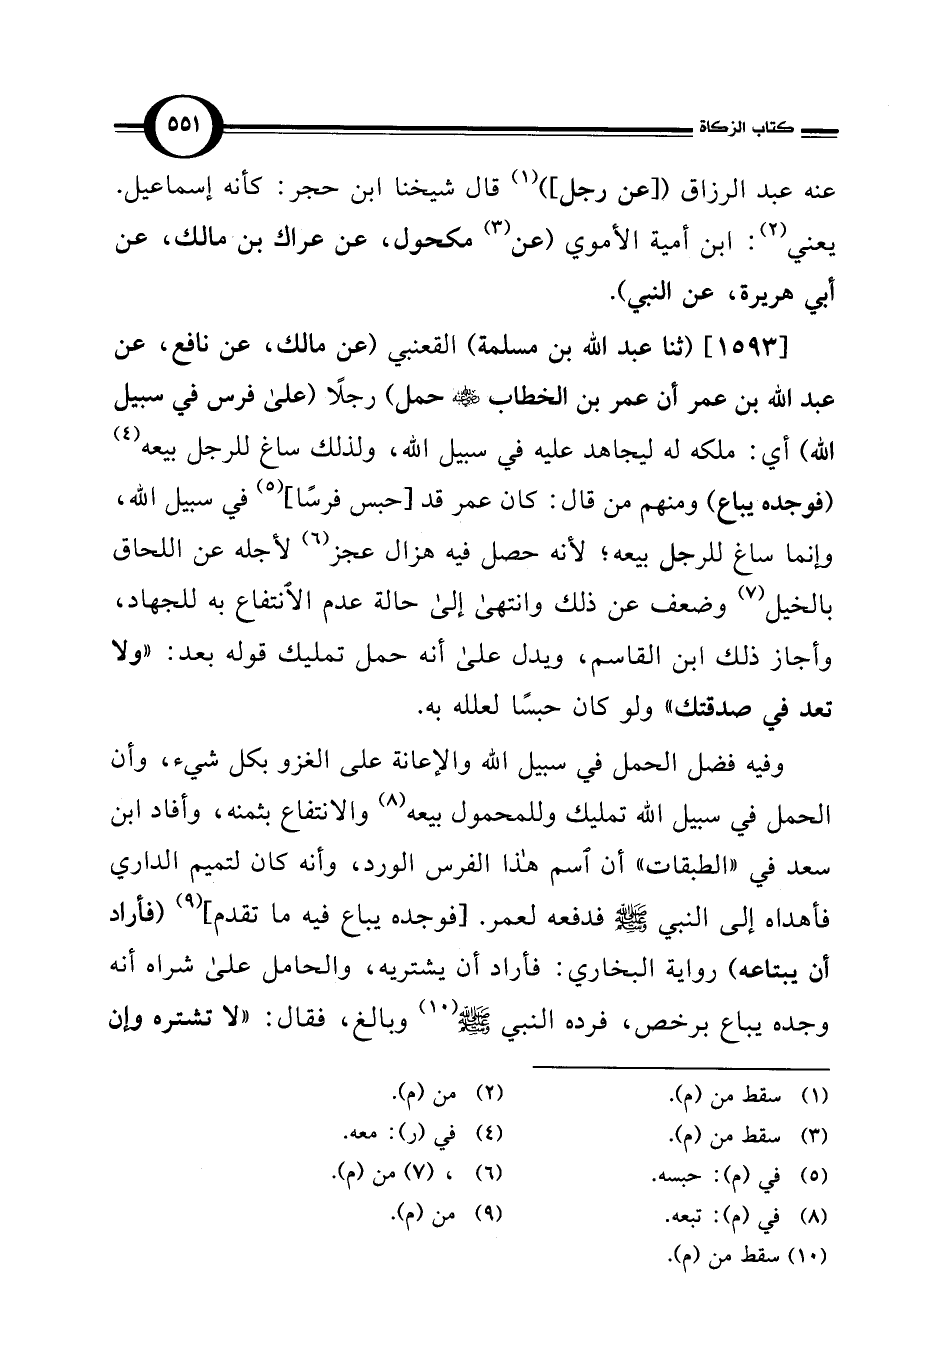 كتاب الزكاة ٥٥١
عنه عبد الرزاق ([عن رجل])(١) قال شيخنا ابن حجر: كأنه إسماعيل.
يعني(٢): ابن أمية الأموي (عن(٣) مكحول، عن عراك بن مالك، عن
أبي هريرة، عن النبي).
[١٥٩٣] (ثنا عبد الله بن مسلمة) القعنبي (عن مالك، عن نافع، عن
عبد الله بن عمر أن عمر بن الخطاب رضي الله عنه حمل) رجلًا (علىٰ فرس في سبيل
الله) أي: ملكه له ليجاهد عليه في سبيل الله، ولذلك ساغ للرجل بيعه(٤)
(فوجده يباع) ومنهم من قال: كان عمر قد [حبس فرسًا](٥) في سبيل الله،
وإنما ساغ للرجل بيعه؛ لأنه حصل فيه هزال عجز(٦) لأجله عن اللحاق
بالخيل(٧) وضعف عن ذلك وانتهىٰ إلىٰ حالة عدم الأنتفاع به للجهاد،
وأجاز ذلك ابن القاسم، ويدل علىٰ أنه حمل تمليك قوله بعد: «ولا
تعد في صدقتك» ولو كان حبسًا لعلله به.
وفيه فضل الحمل في سبيل الله والإعانة على الغزو بكل شيء، وأن
الحمل في سبيل الله تمليك وللمحمول بيعه(٨) والانتفاع بثمنه، وأفاد ابن
سعد في «الطبقات» أن ٱسم هٰذا الفرس الورد، وأنه كان لتميم الداري
فأهداه إلى النبي ﷺ فدفعه لعمر. [فوجده يباع فيه ما تقدم](٩) (فأراد
أن يبتاعه) رواية البخاري: فأراد أن يشتريه، والحامل علىٰ شراه أنه
وجده يباع برخص، فرده النبي ﷺ(١٠) وبالغ، فقال: «لا تشتره وإن
(١) سقط من (م). (٢) من (م).
(٣) سقط من (م). (٤) في (ر): معه.
(٥) في (م): حبسه. (٦) ، (٧) من (م).
(٨) في (م): تبعه. (٩) من (م).
(١٠) سقط من (م).